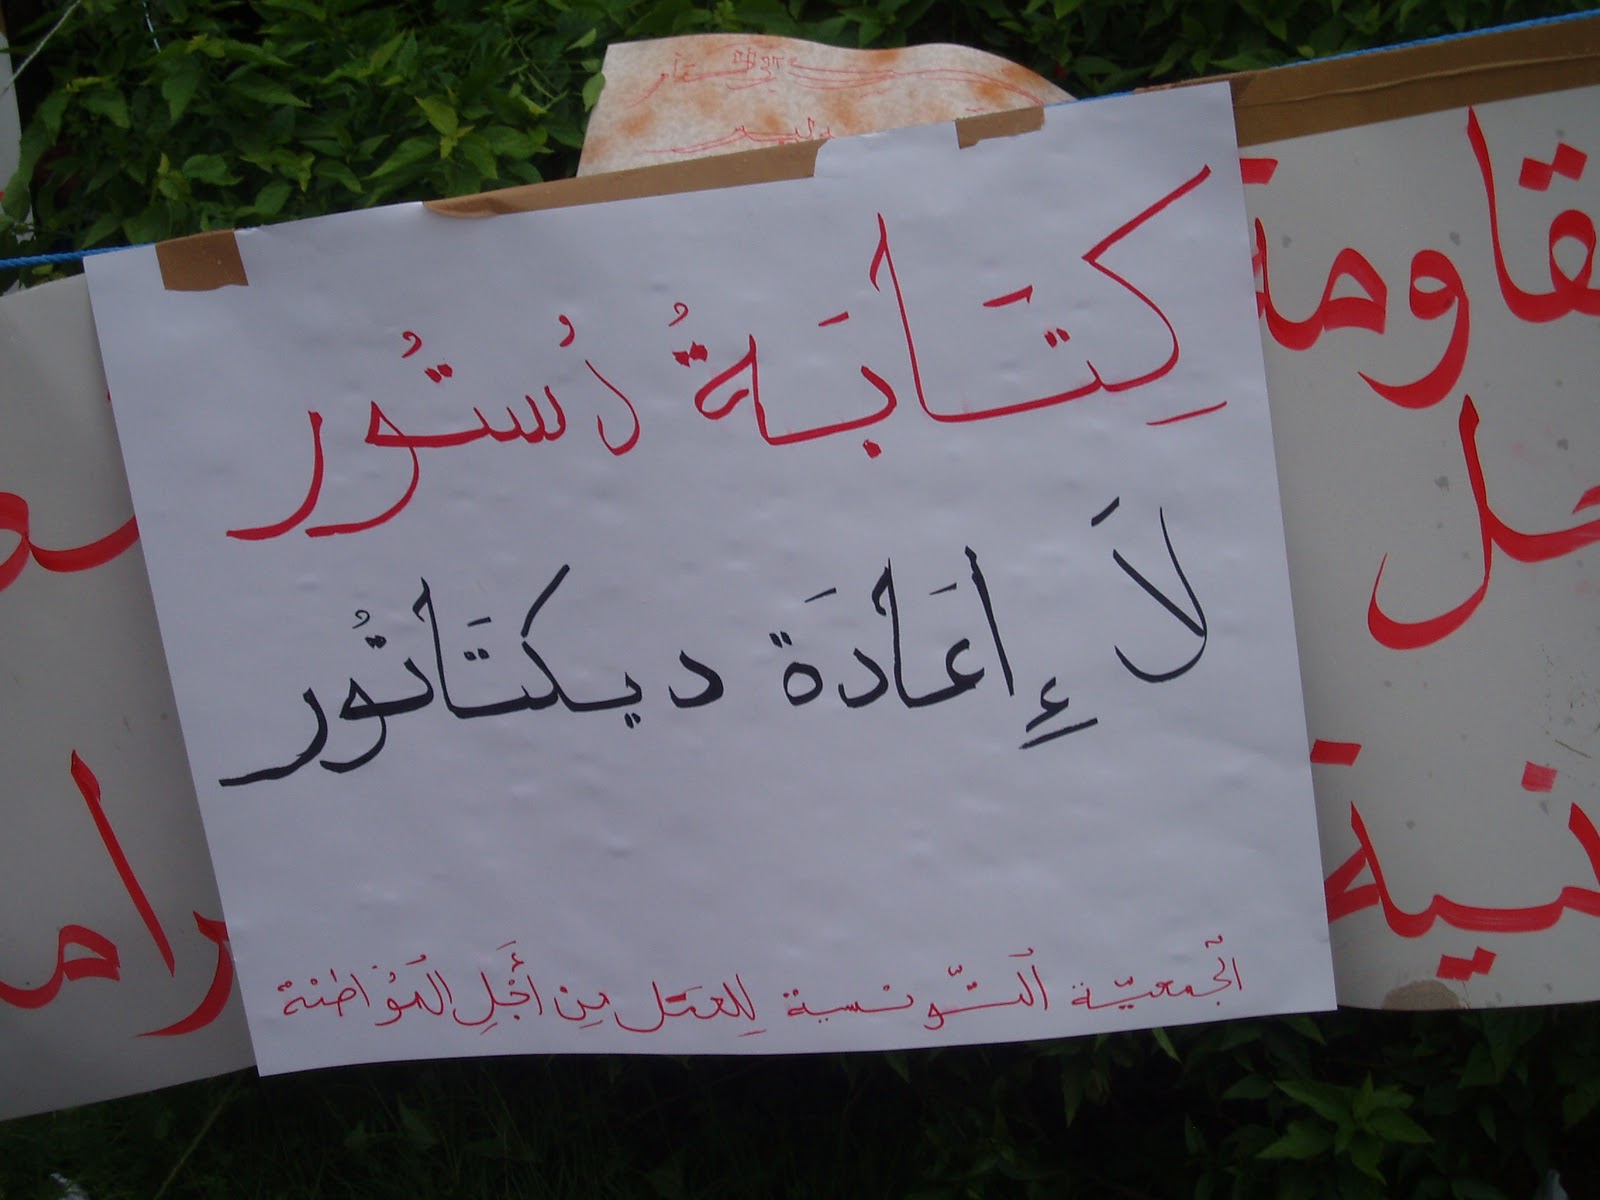 كِتَابَةُ دُستُور
لاَ إِعَادَة ديكتَاتُور
الجمعيّة التّونسية لِلعمَل مِن أَجْلِ المُؤاطنة
قاومة
حل
نية
رام